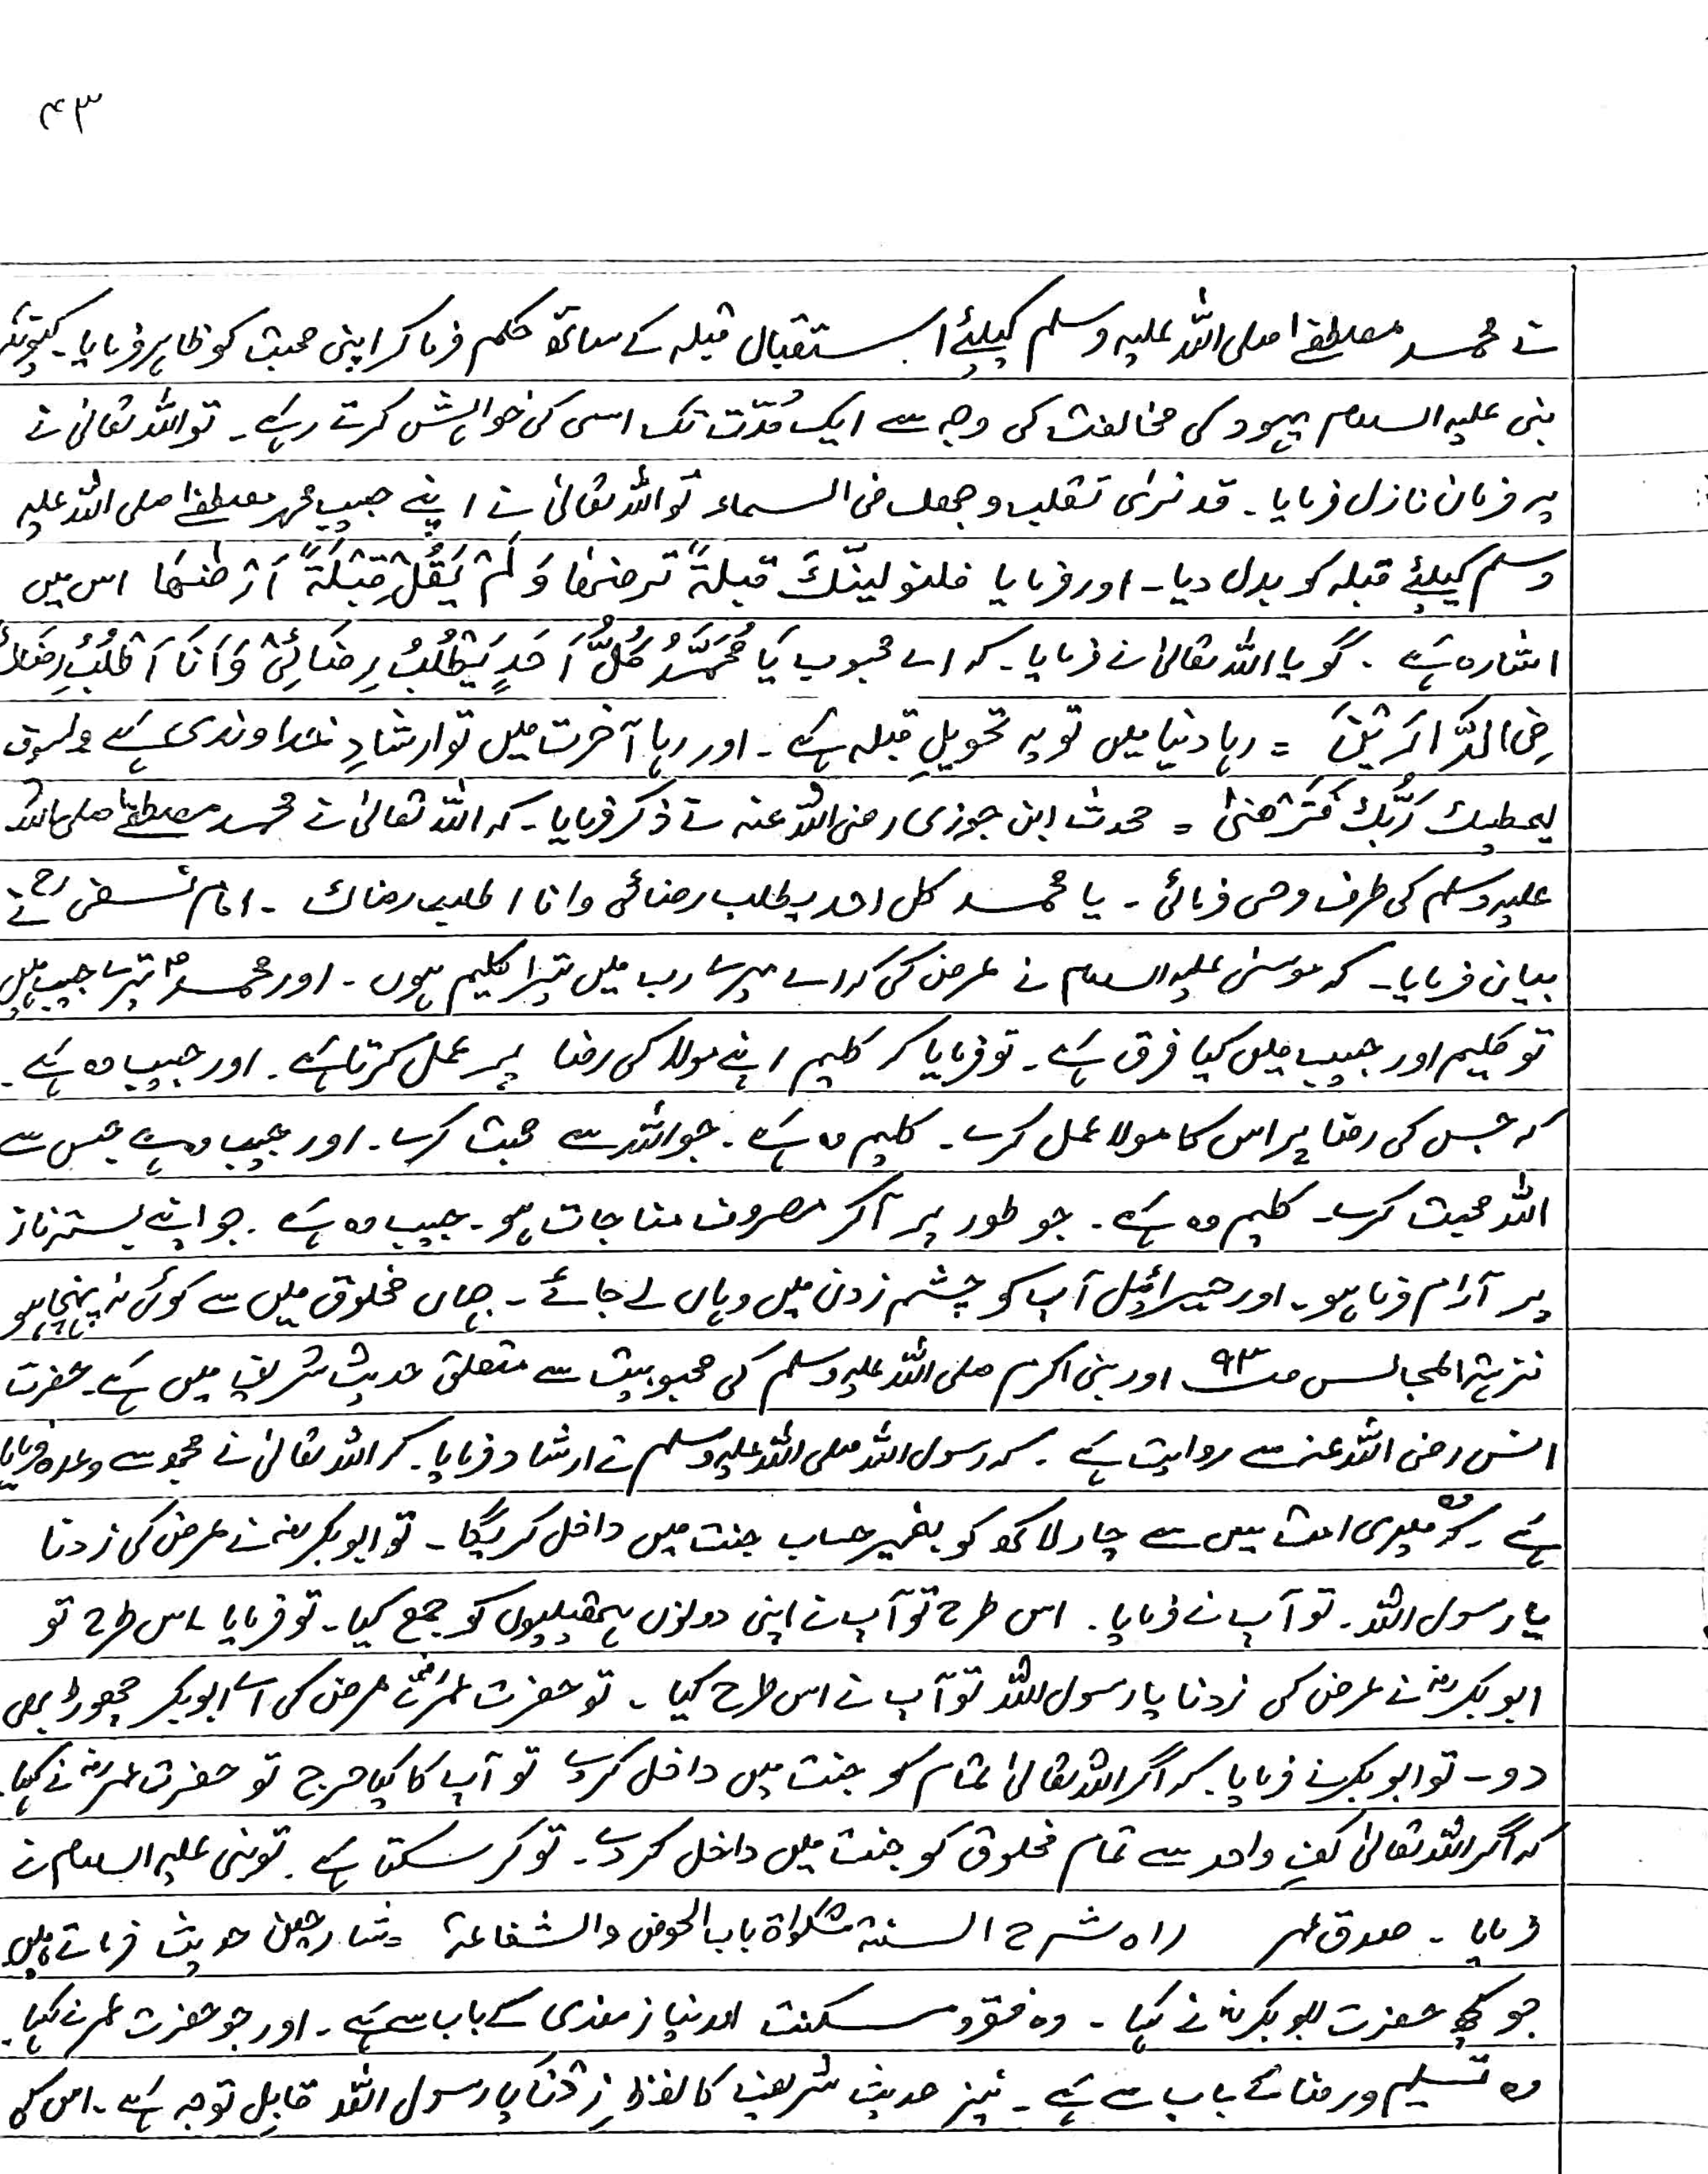 ۴۳
نے محمد مصطفےٰ صلی اللہ علیہ وسلم کیلئے استقبال قبلہ کے ساتھ حکم فرما کر اپنی محبت کو ظاہر فرمایا۔ کیونکہ
نبی علیہ السلام یہود کی مخالفت کی وجہ سے ایک مُدّت تک اسی کی خواہش کرتے رہے۔ تو اللہ تعالیٰ نے
یہ فرمان نازل فرمایا۔ قد نرٰی تقلب وجھک فی السماء تو اللہ تعالیٰ نے اپنے حبیب محمد مصطفےٰ صلی اللہ علیہ
وسلم کیلئے قبلہ کو بدل دیا۔ اور فرمایا فلنولینّکَ قبلۃً ترضٰھا وَ لَمْ یَقُلْ قِبْلَۃً اَرْضٰھَا اس میں
اشارہ ہے۔ گویا اللہ تعالیٰ نے فرمایا۔ کہ اے محبوب یَا مُحَمَّدُ کُلُّ اَحَدٍ یَطْلُبُ رِضَائِیْ وَ اَنَا اَطْلُبُ رِضَاکَ
فِی الدَّارَیْنِ = رہا دنیا میں تو یہ تحویلِ قبلہ ہے۔ اور رہا آخرت میں تو ارشادِ خداوندی ہے ولسوف
یعطیک رَبُّکَ فَتَرْضیٰ = محدث ابن جوزی رضی اللہ عنہ نے ذکر فرمایا۔ کہ اللہ تعالیٰ نے محمد مصطفےٰ صلی اللہ
علیہ وسلم کی طرف وحی فرمائی۔ یا محمد کل احد یطلب رضائی وانا اطلب رضاک۔ امام نسفی رح نے
بیان فرمایا۔ کہ موسیٰ علیہ السلام نے عرض کی کہ اے میرے رب میں تیرا کلیم ہوں۔ اور محمد ؐ تیرے حبیب ہیں
تو کلیم اور حبیب میں کیا فرق ہے۔ تو فرمایا کہ کلیم اپنے مولا کی رضا پر عمل کرتا ہے۔ اور حبیب وہ ہے۔
کہ جس کی رضا پر اس کا مولا عمل کرے۔ کلیم وہ ہے۔ جو اللہ سے محبت کرے۔ اور حبیب وہ ہے جس سے
اللہ محبت کرے۔ کلیم وہ ہے۔ جو طور پر آکر مصروف مناجات ہو۔ حبیب وہ ہے۔ جو اپنے بستر ناز
پر آرام فرما ہو۔ اور جبرائیل آپ کو چشم زدن میں وہاں لے جائے۔ جہاں مخلوق میں سے کوئی نہ پہنچا ہو
نزہۃ المجالس صـ ۹۳ اور نبی اکرم صلی اللہ علیہ وسلم کی محبوبیت سے متعلق حدیث شریف میں ہے۔ حضرت
انس رضی اللہ عنہ سے روایت ہے۔ کہ رسول اللہ صلی اللہ علیہ وسلم نے ارشاد فرمایا۔ کہ اللہ تعالیٰ نے مجھ سے وعدہ فرمایا
ہے۔ کہ وہ میری امت میں سے چار لاکھ کو بغیر حساب جنت میں داخل کریگا۔ تو ابوبکر رضہ نے عرض کی زدنا
یا رسول اللہ۔ تو آپ نے فرمایا۔ اس طرح تو آپ نے اپنی دونوں ہتھیلیوں کو جمع کیا۔ تو فرمایا۔ اس طرح تو
ابوبکر رضہ نے عرض کی زدنا یا رسول اللہ تو آپ نے اس طرح کیا۔ تو حضرت عمر رضؓ نے عرض کی اے ابوبکر چھوڑ بھی
دو۔ تو ابوبکر نے فرمایا۔ کہ اگر اللہ تعالیٰ تمام کو جنت میں داخل کر دے تو آپ کا کیا حرج تو حضرت عمر رضہ نے کہا۔
کہ اگر اللہ تعالیٰ کفِ واحد سے تمام مخلوق کو جنت میں داخل کر دے۔ تو کر سکتا ہے۔ تو نبی علیہ السلام نے
فرمایا۔ صدق عمر راہ شرح السنۃ مشکواۃ باب الحوض والشفاعۃ = شارحین حدیث فرماتے ہیں
جو کچھ حضرت ابوبکر رضہ نے کہا۔ وہ فقر و مسکنت اور نیاز مندی کے باب سے ہے۔ اور جو حضرت عمر نے کہا۔
وہ تسلیم و رضا کے باب سے ہے۔ نیز حدیث شریف کا لفظ زِدْنَا یا رسول اللہ قابلِ توجہ ہے۔ اس کی